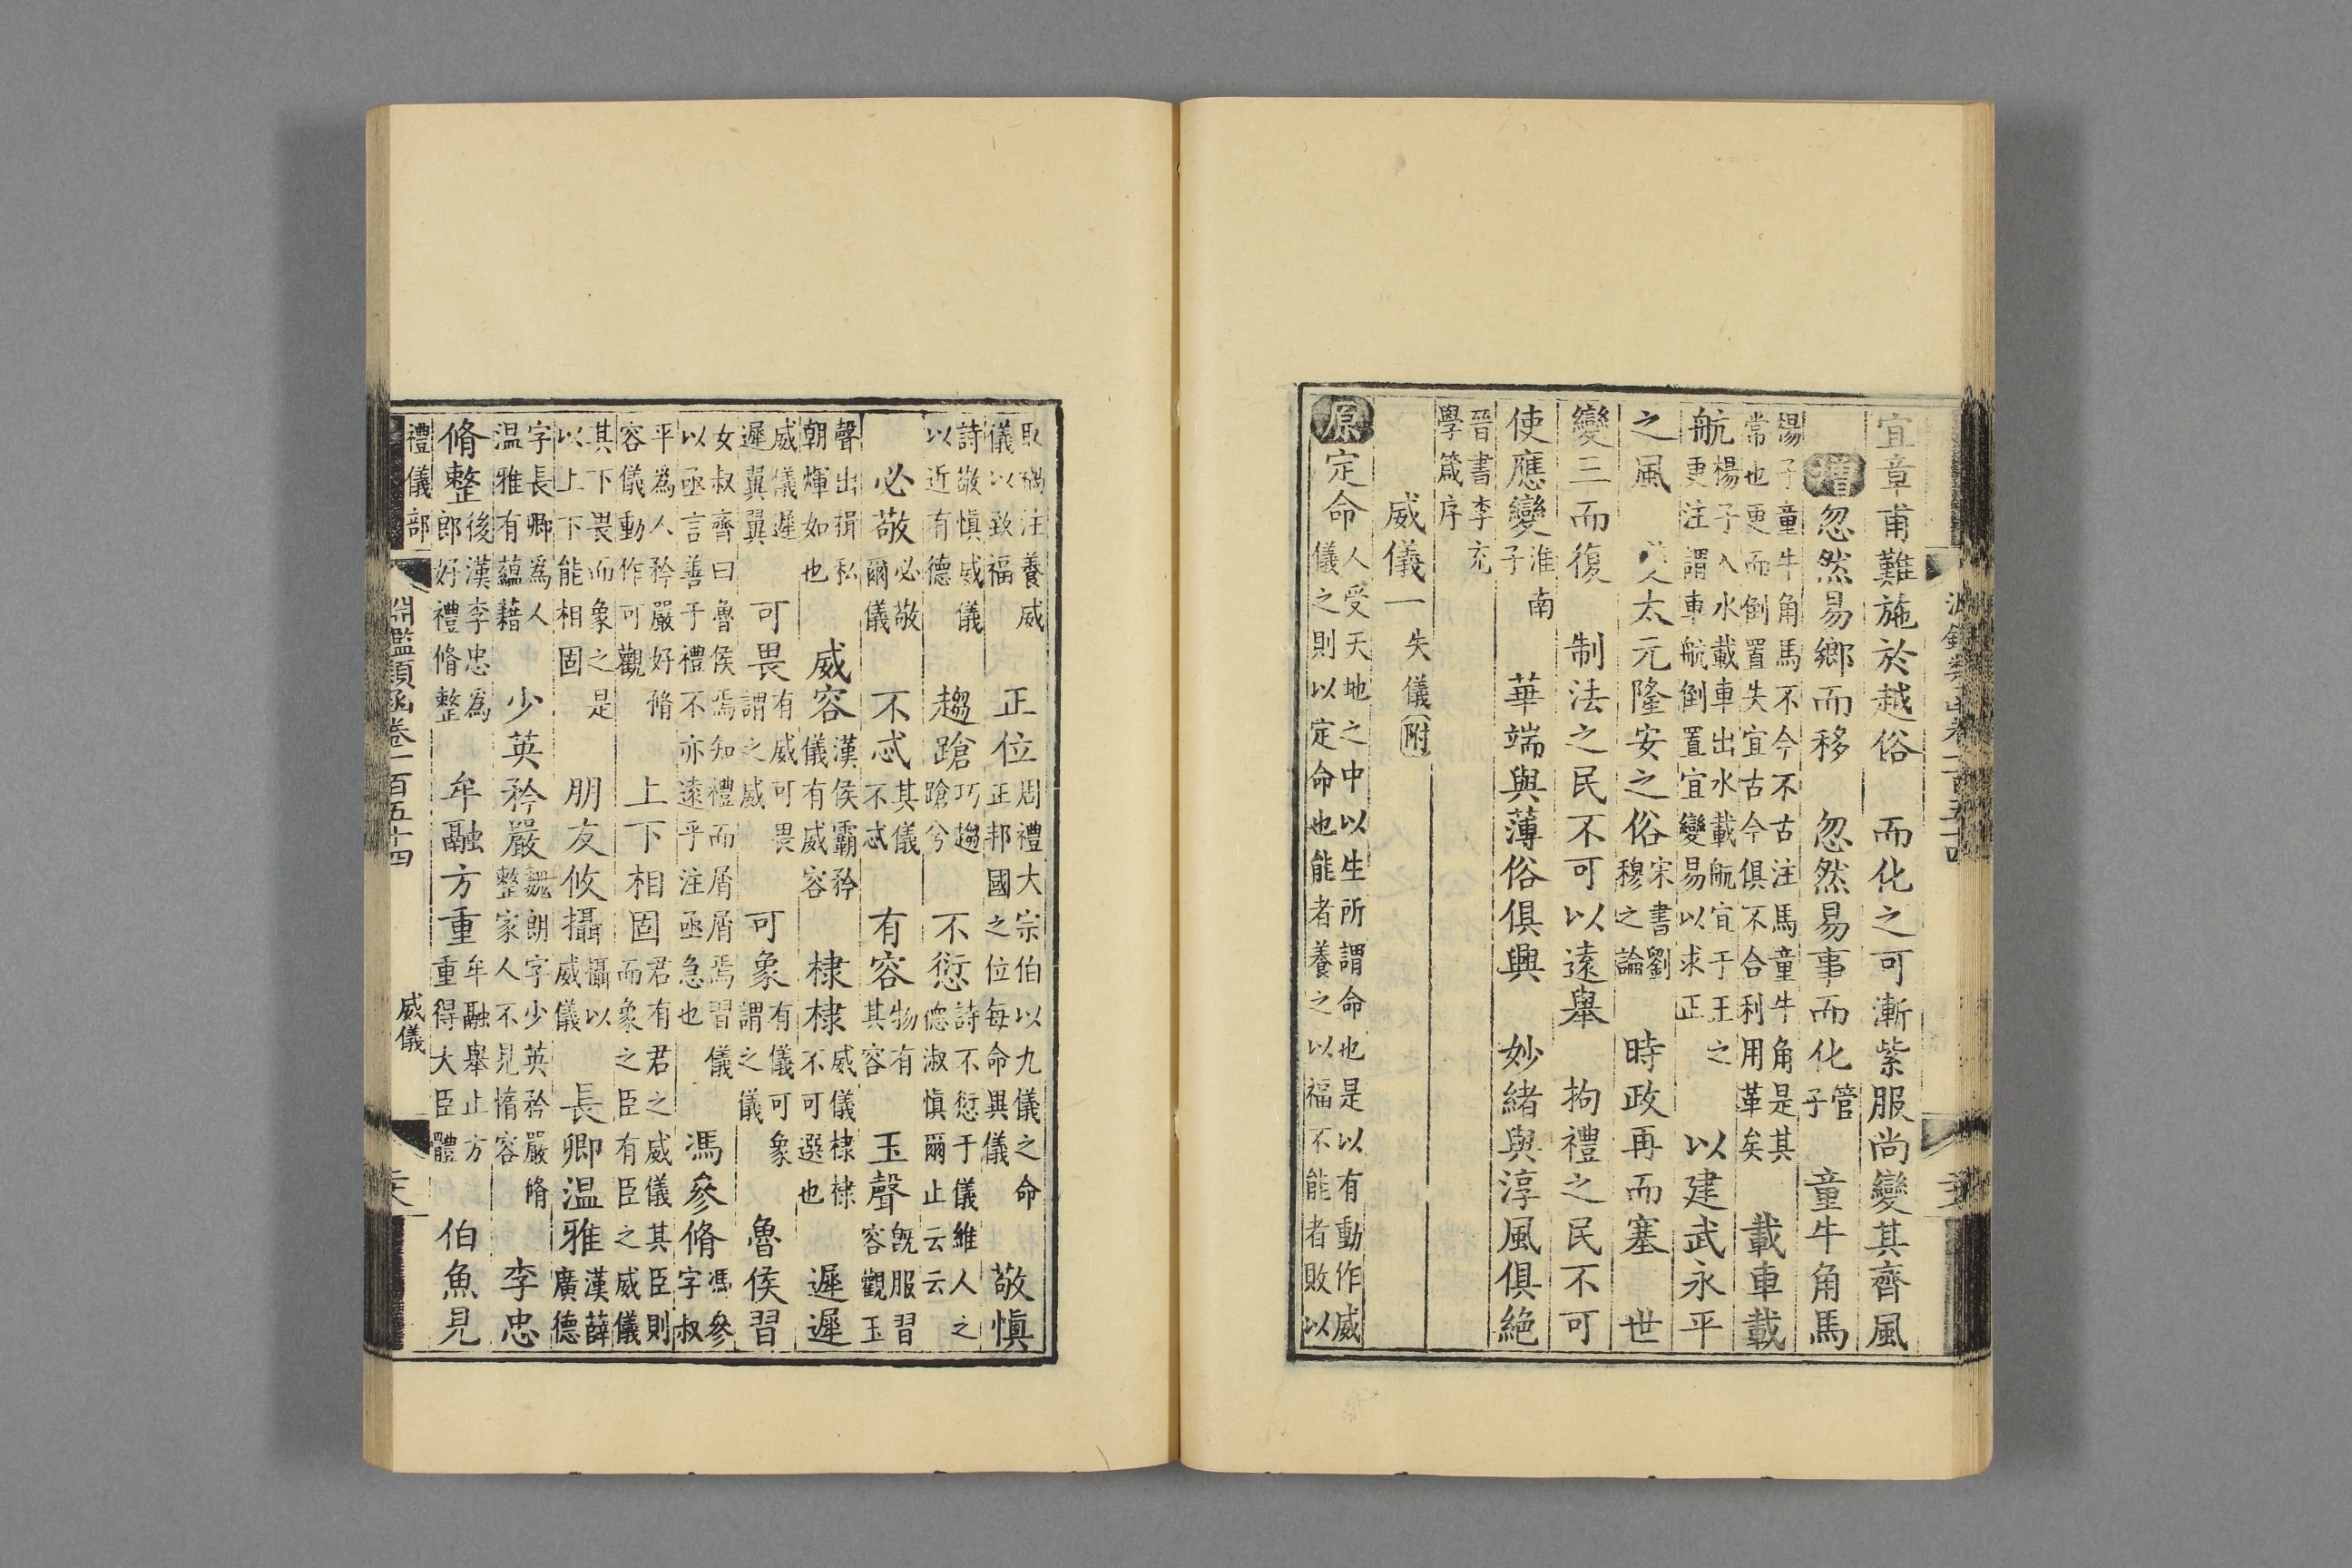 宜章甫難施於越俗　而化之可漸紫服尚變其齊風
增　忽然易鄉而移　忽然易事而化　管子　童牛角馬
揚子童牛角馬不今不古注馬童牛角是其
常也更而倒置失宜古今俱不合利用革矣　載車載
航　楊子入水載車出水載航宜于王之
更注謂車航倒置宜變易以求正　以建武永平
之風　太元隆安之俗　宋書劉
穆之論　時政再而塞　世
變三而復　制法之民不可以遠舉　拘禮之民不可
使應變　淮南
子　華端與薄俗俱興　妙緒與淳風俱絕
晉書李充
學箴序
威儀一　失儀附
原　定命　人受天地之中以生所謂命也是以有動作威
儀之則以定命也能者養之以福不能者敗以
取禍注養威
儀以致福　正位　周禮大宗伯以九儀之命
正邦國之位每命異儀　敬慎
詩敬慎威儀
以近有德　趨蹌　巧趨
蹌兮　不愆　詩不愆于儀維人之
德淑慎爾止云云
必敬　必敬
爾儀　不忒　其儀
不忒　有容　物有
其容　玉聲　既服習
容觀玉
聲出揖私
朝煇如也　威容　漢侯霸矜
儀有威容　棣棣　威儀棣棣
不可選也　遲遲
威儀遲
遲翼翼　可畏　有威可畏
謂之威　可象　有儀可象
謂之儀　魯侯習
女叔齊曰魯侯焉知禮而屑屑焉習儀
以亟言善于禮不亦遠乎注亟急也　馮參脩　馮參
字叔
平為人矜嚴好脩
容儀動作可觀　上下相固　君有君之威儀其臣則
而象之臣有臣之威儀
其下畏而象之是
以上下能相固　朋友攸攝　攝以
威儀　長卿温雅　漢薛
廣德
字長卿為人
温雅有蘊藉　少英矜嚴　魏朗字少英矜嚴脩
整家人不見惰容　李忠
脩整　後漢李忠為
郎好禮脩整　牟融方重　牟融舉止方
重得大臣體　伯魚見
禮儀部　淵鑑類函卷一百五十四　威儀